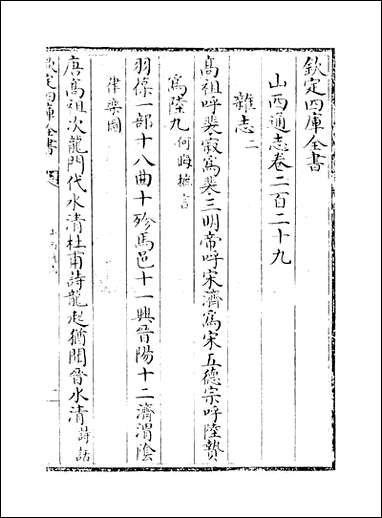 欽定四庫全書
山西通志卷二百二十九
雜志二
高祖呼裴寂為裴三明帝呼宋濟為宋五德宗呼陸贄
為陸九何晦摭言
羽葆一部十八曲十殄馬邑十一興晉陽十二濟渭陰
律樂圖
唐高祖次龍門代水清杜甫詩龍起猶聞晉水清詩話
欽定四庫全書